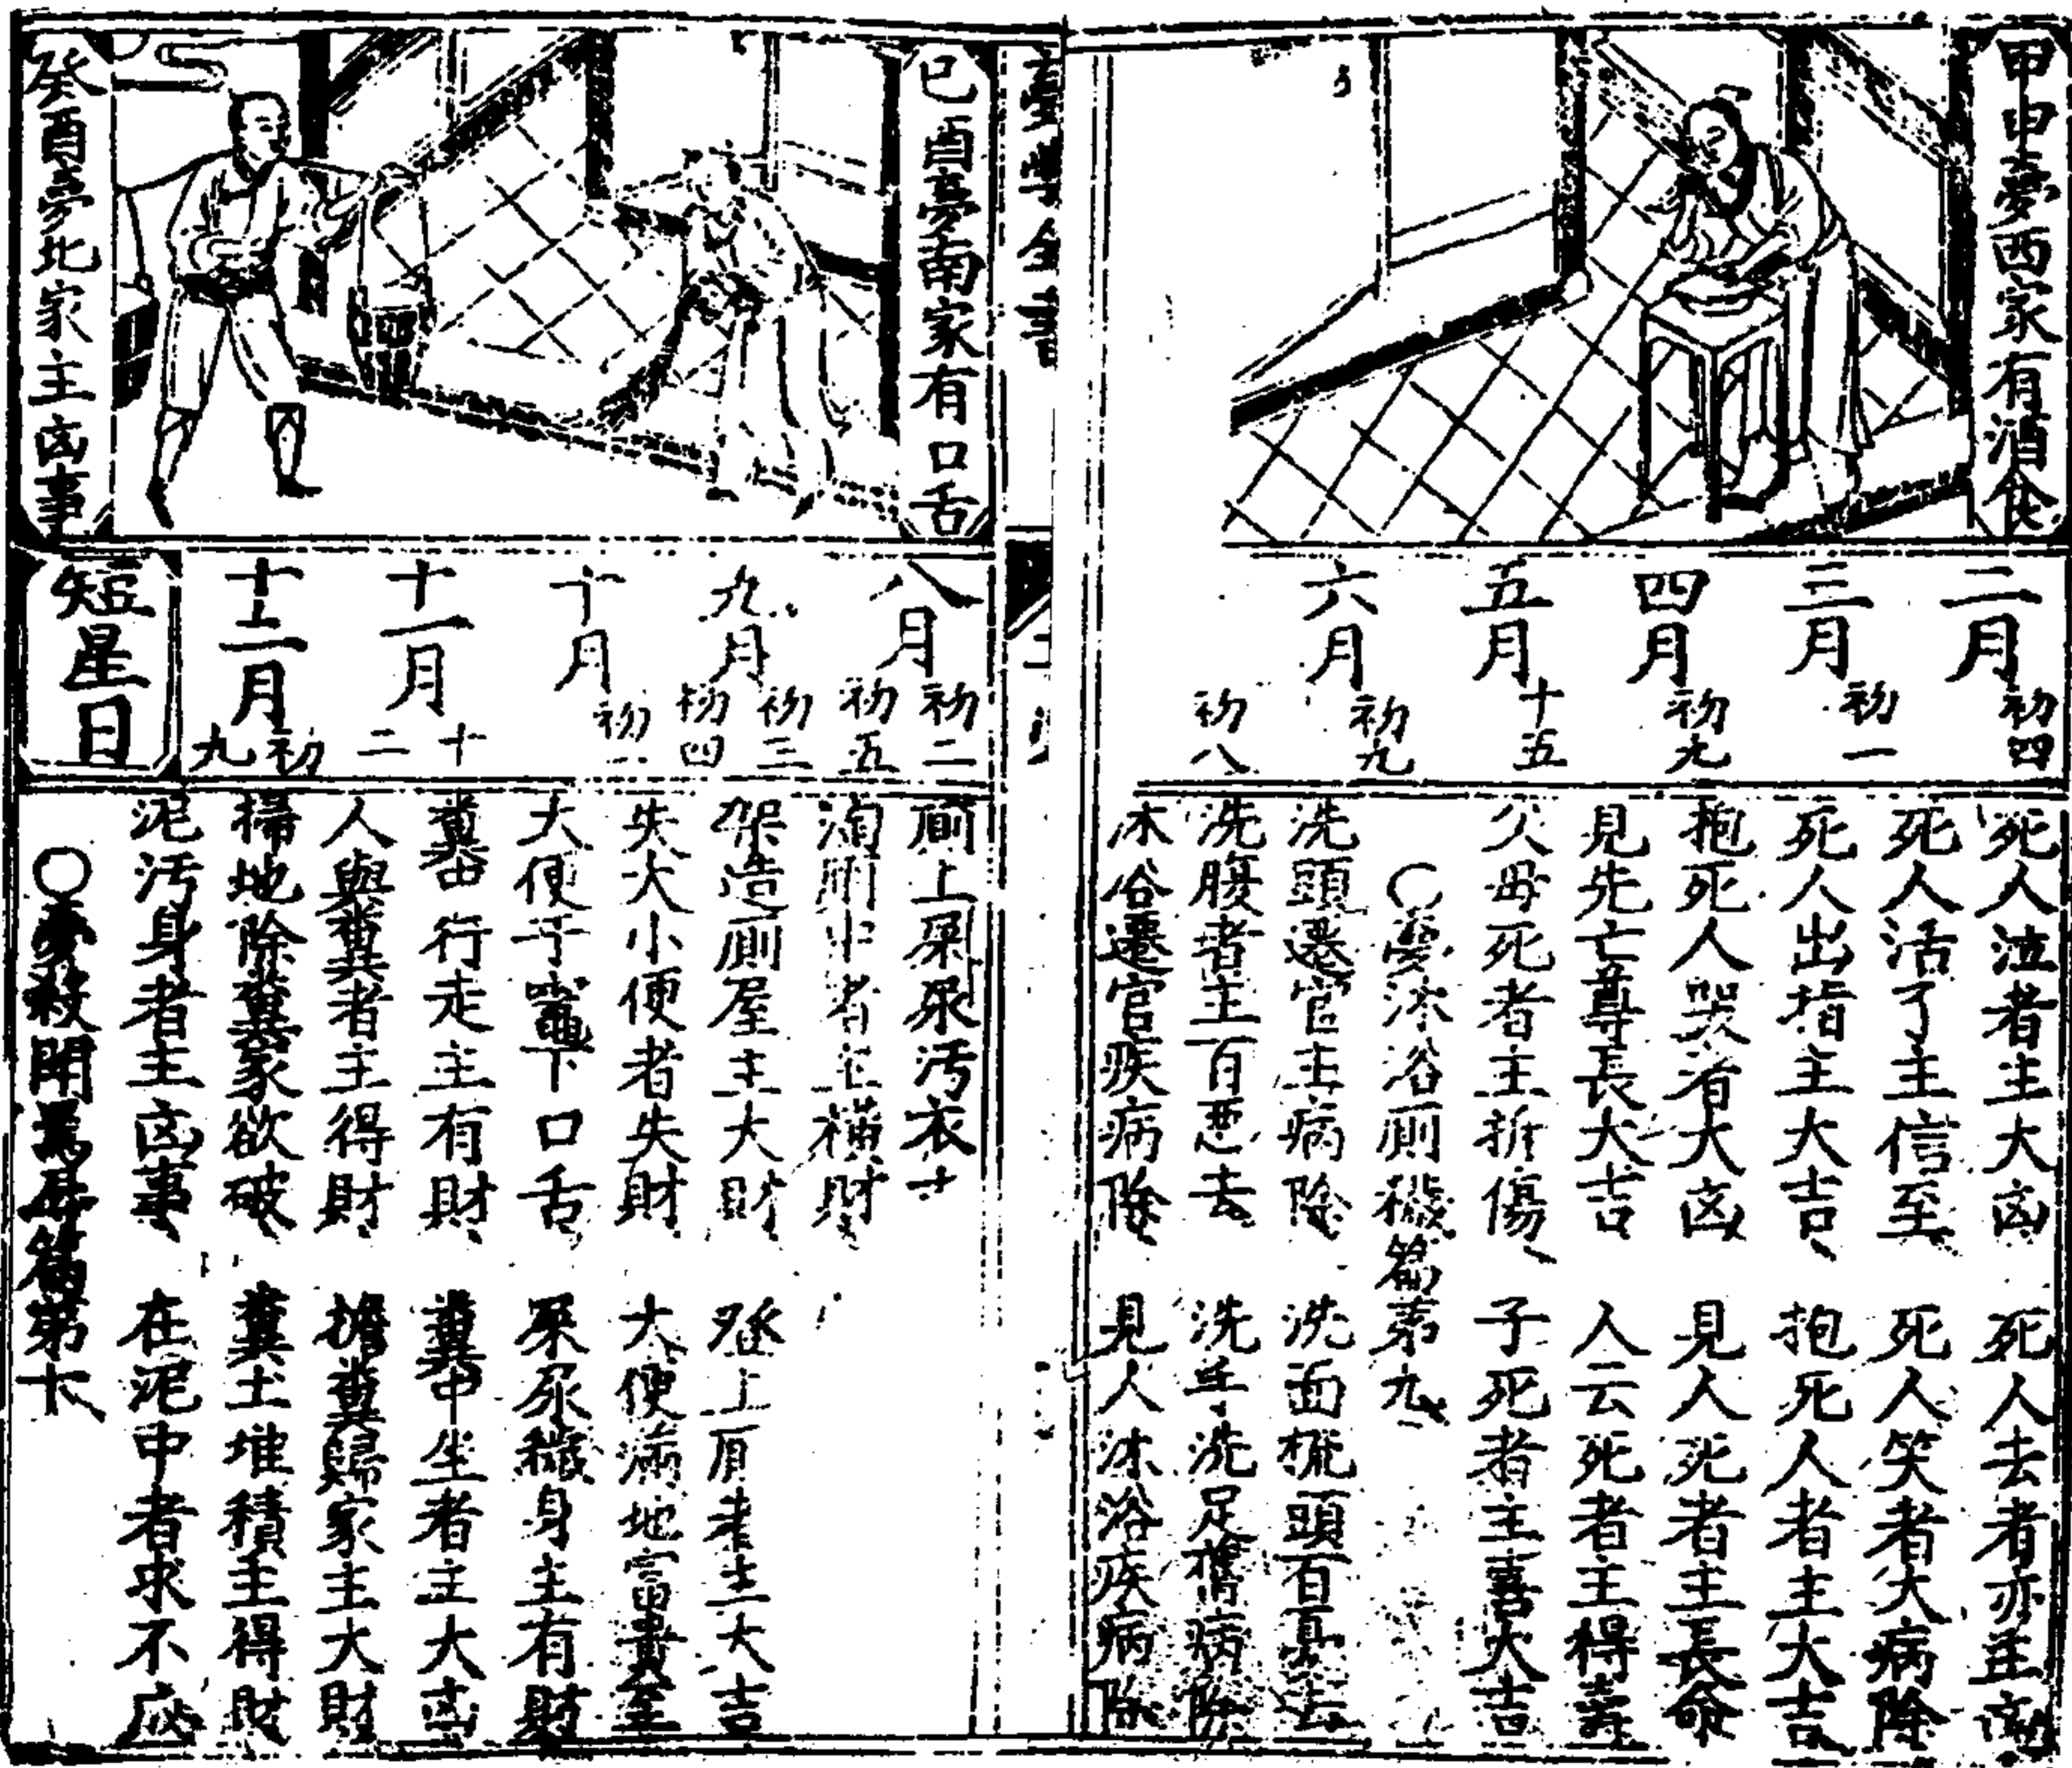 甲申夢西家有酒食
二月初四
三月初一
四月初九
五月十五
六月初九
初八
死人泣者主大凶 死人去者亦主凶
死人活了主信至 死人笑者大病除
死人出指主大吉 抱死人者主大吉
抱死人哭者大凶 見人死者主長命
見先亡尊長大吉 人云死者主得壽
父毋死者主折傷 子死者主喜大吉
〇夢沐浴厠穢篇第九
洗頭遷官主病除 洗面梳頭百憂去
洗腹者主百惡去 洗手洗足舊病除
沐浴遷官疾病除 見人沐浴疾病除
全書
己酉夢南家有口舌
癸酉夢北家主凶事
八月初二初五
九月初三初四
十月初一
十一月十二
十二月初九
短星日
厠上屎尿汚衣
淘厠中者主橫財
架造厠屋主大財 登上厠者主大吉
失大小便者失財 大便滿地富貴至
大便于竈下口舌 屎尿穢身主有財
糞中行走主有財 糞中坐者主大凶
人與糞者主得財 擔糞歸家主大財
掃地除糞家欲破 糞土堆積主得財
泥汚身者主凶事 在泥中者求不應
〇夢殺鬪罵辱篇第十